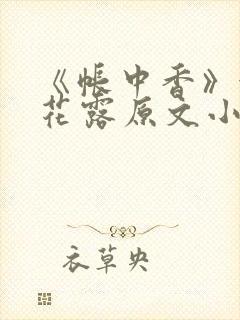 《帳中香》
花露原文小
衣草央